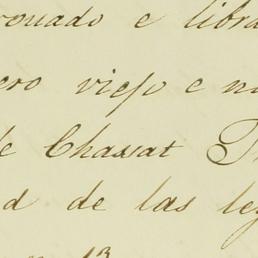 ronado e libra
ero viejo e n
de Chassat
d de las ley
13